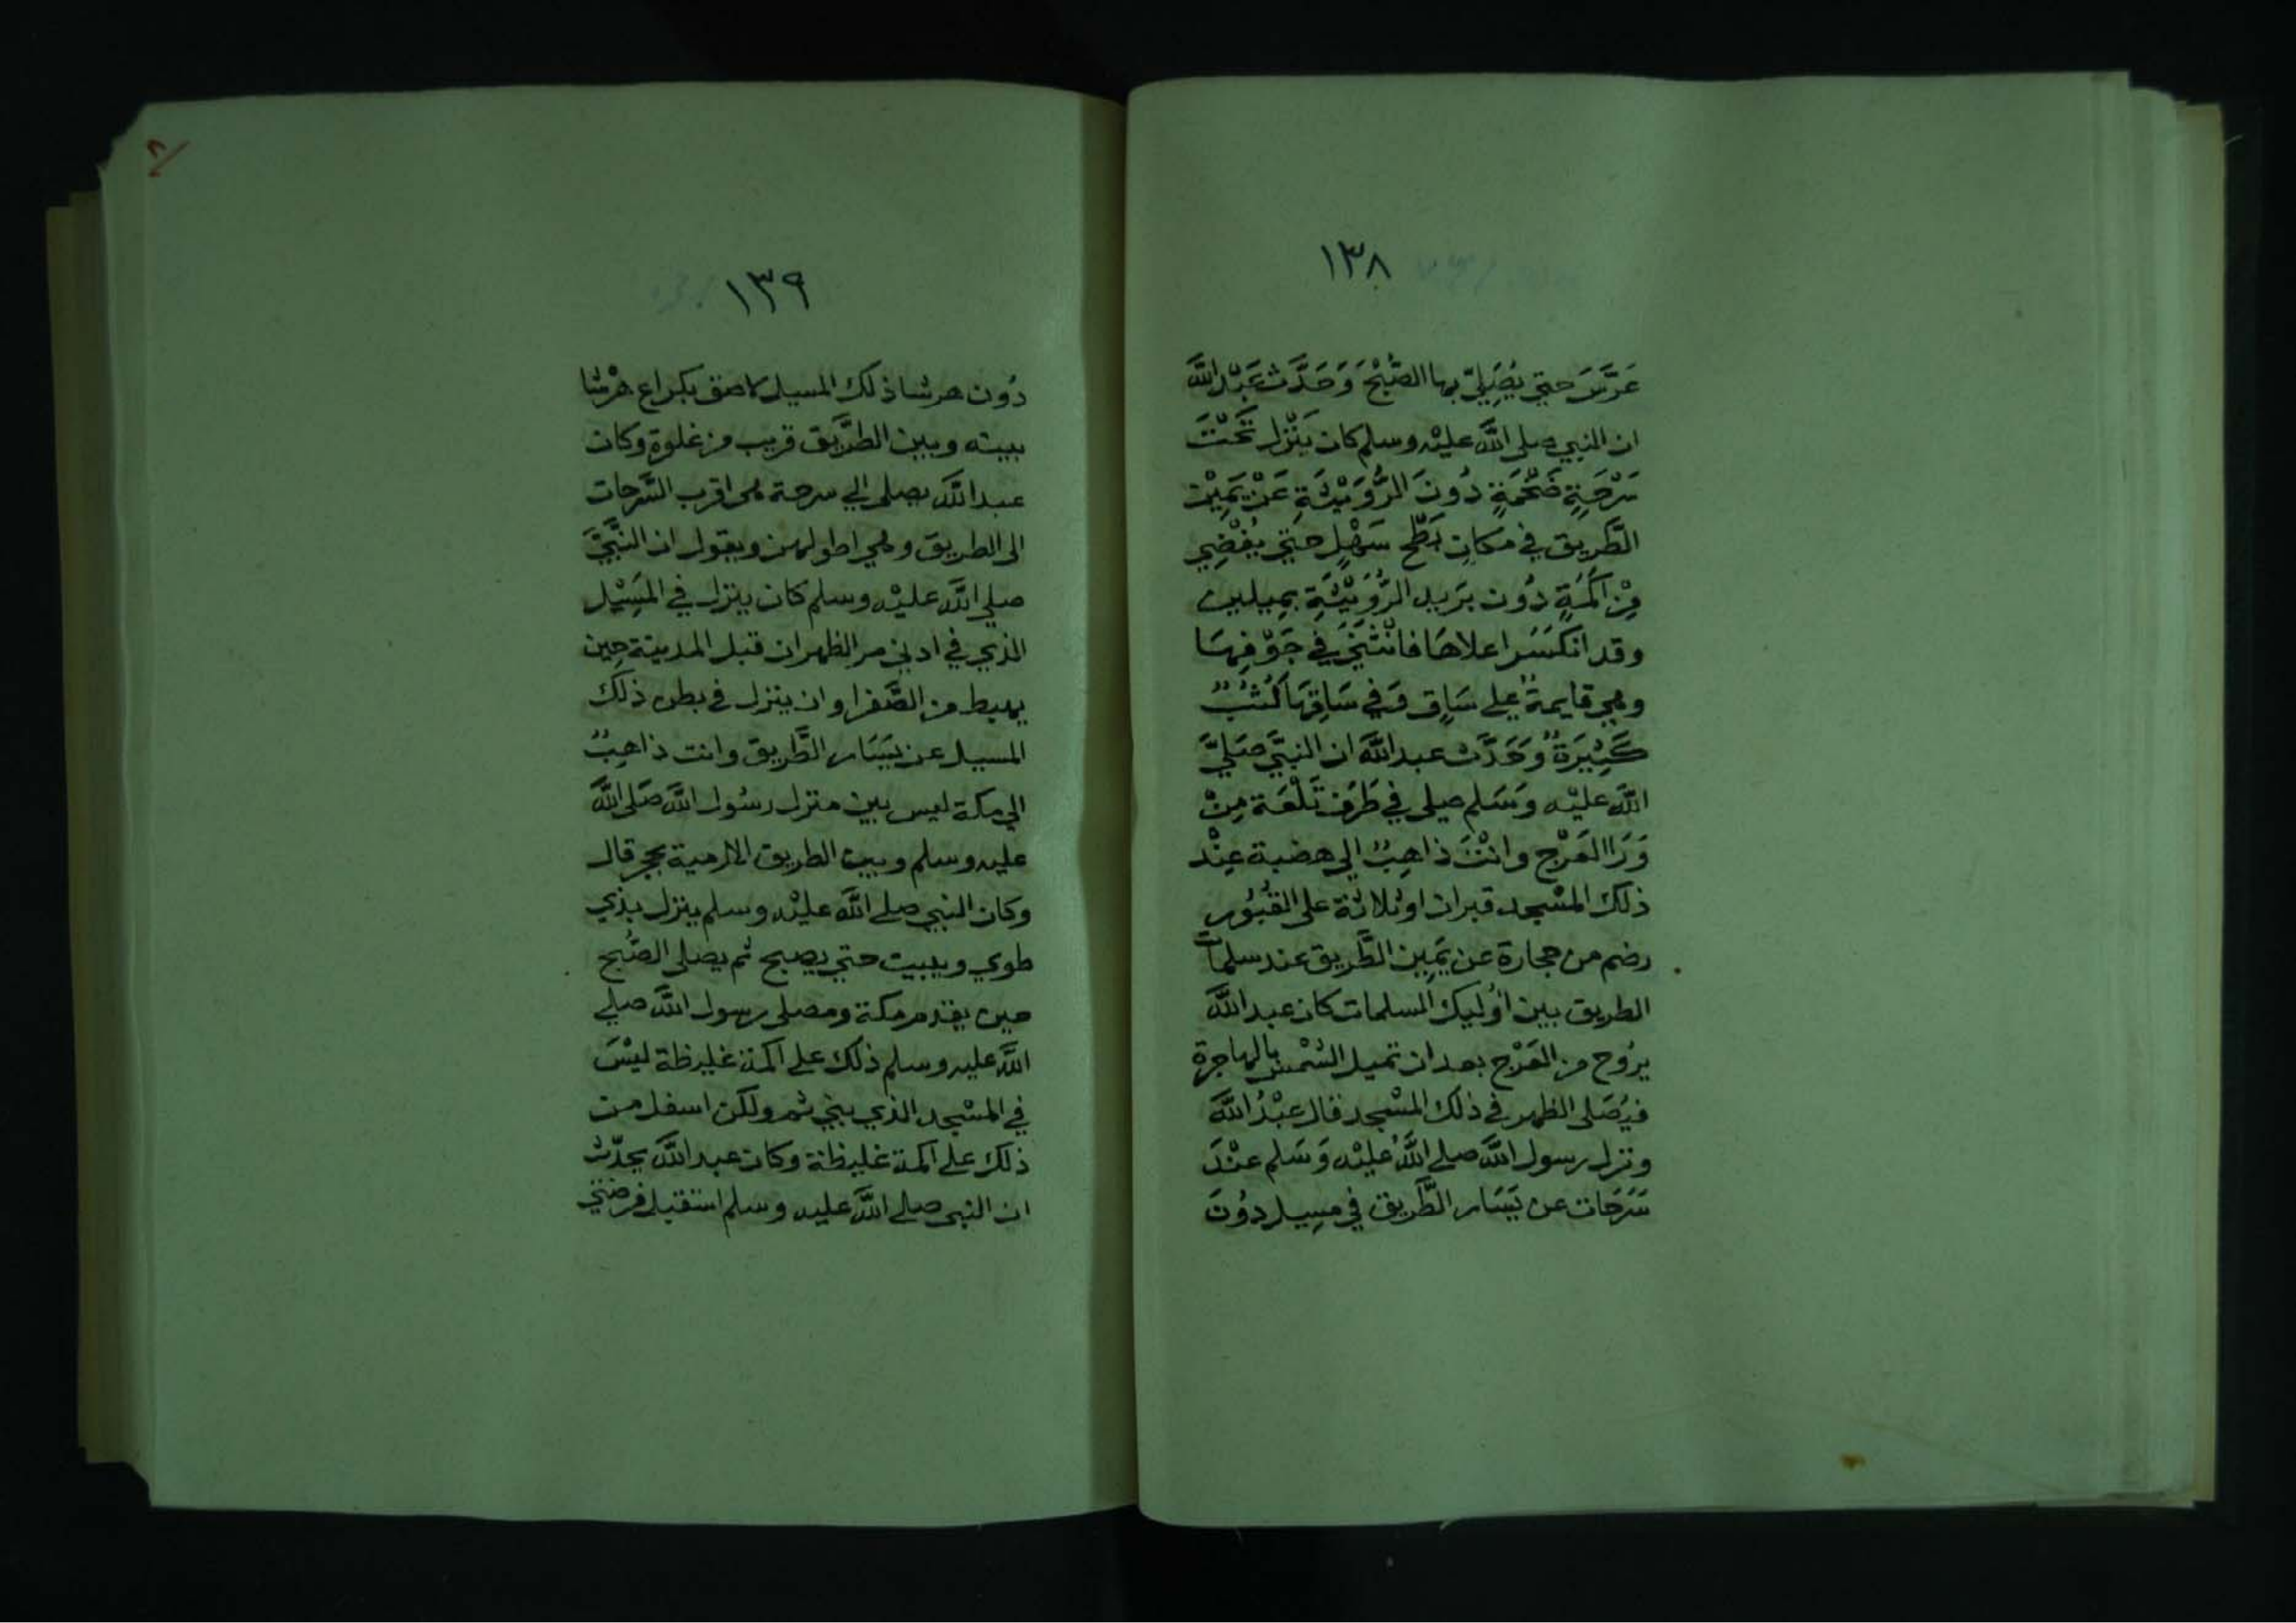 ١٣٨
عَرَّسَ حتي يُصَلِيّ بها الصُّبْحَ وَحَدَّث عَبْد اللَّه
ان النبي صلى اللَّه عليْه وسلم كان يَنْزل تَحْتَ
سَرْحَةٍ ضَخْمَةٍ دُونَ الرُّوَيْثَةِ عَنْ يَمِيْن
الطَّريق في مَكانٍ بَطْحٍ سَهْلٍ حتي يُفْضِي
مِن اكَمَةٍ دُون بَريد الرُّوَيْثَةِ بمِيلين
وقد انكَسَر اعلاهَا فانْثَنَي في جَوْفِهَا
وهي قايمةٌ علي سَاقٍ وَفي سَاقِهَا كُثُبٌ
كَثِيرَةٌ وَحَدَّث عبد اللَّه ان النبيَّ صَلّيَ
اللَّه عليْه وَسَلم صلى في طَرَف تَلْعَة مِنْ
وَرَا العَرْج وانْتَ ذاهِبٌ الي هضبة عِنْد
ذلك المسْجد قبران او ثلاثة على القُبُور
رضم من حجارة عن يَمِين الطَّريق عند سلمات
الطريق بين اوُليك السلمات كان عبد اللَّه
يرُوح من العَرْج بعد ان تميل الشمْس بالهاجرة
فيُصَلى الظهر في ذلك المسْجد فال عبْدُ اللَّه
ونزل رسول اللَّه صلي اللَّهُ عليْه وَسَلم عنْدَ
سَرَحَات عن يَسَار الطَّريق في مسِيل دوُنَ
١٣٩
دُون هرشا ذلك المسيل لاصق بكراع هرْشا
بيته وبين الطَّريق قريب من غلوة وكان
عبد اللَّه يصلى الي سرحة هي اقرب السَّرحات
الى الطريق وهي اطولهن ويقول ان النَّبيَّ
صلي اللَّه عليْه وسلم كان ينزل في المَسِيْل
الذي في ادني مر الظهران قبل المدينة حِين
يهبط من الصَّفرا وان ينزل في بطن ذلك
المسيل عن يَسَار الطَّريق وانت ذاهِبٌ
الي مكة ليس بين منزل رسُول اللَّه صَلى اللَّه
عليه وسلم وبين الطريق الا رمية بحجر قال
وكان النبي صلي اللَّه عليْه وسلم ينزل بذي
طوي ويبيت حتي يصبح ثم يصلى الصُّبح
حين يقدم مكة ومصلى رسول اللَّه صلي
اللَّه عليه وسلم ذلك علي اكمة غليظة ليْسَ
في المسْجد الذي بني ثم ولكن اسفل من
ذلك علي اكمة غليظة وكان عبد اللَّه يحدّث
ان النبي صلي اللَّه عليه وسلم استقبل فرضتي